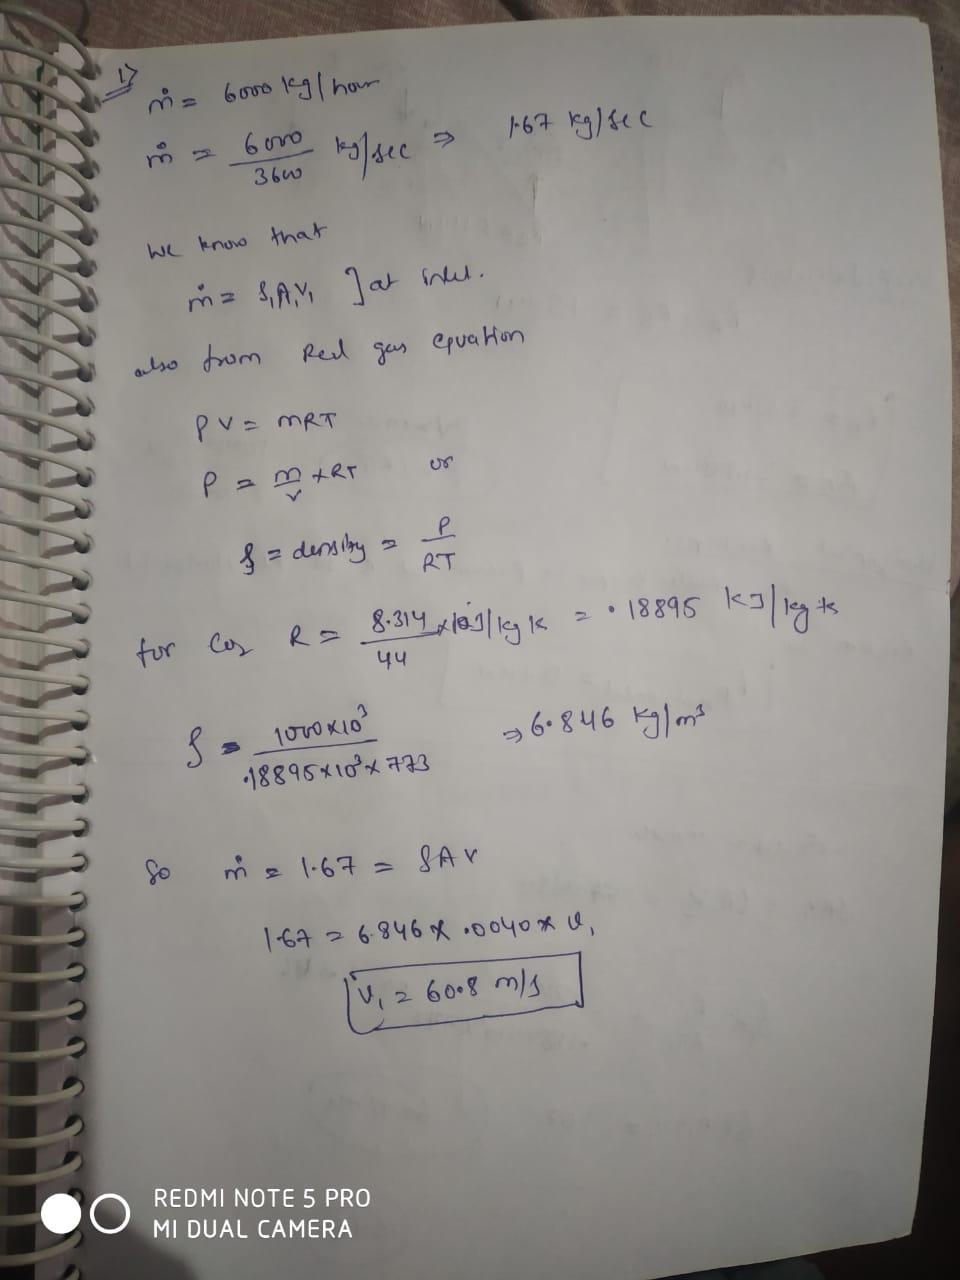 1)
ṁ = 6000 kg/hour
ṁ = 6000/3600 kg/sec ⇒ 1.67 kg/sec
We know that
ṁ = ρ₁A₁V₁ ] at inlet.
also from Real gas equation
PV = mRT
P = m/v × RT or
ρ = density = P/RT
for CO₂ R = 8.314/44 × 10³ J/kg K = .18895 kJ/kg k
ρ = 1000×10³/.18895×10³×773 ⇒ 6.846 kg/m³
So ṁ = 1.67 = ρAV
1.67 = 6.846 × .0040 × v₁
v₁ = 60.8 m/s
REDMI NOTE 5 PRO
MI DUAL CAMERA